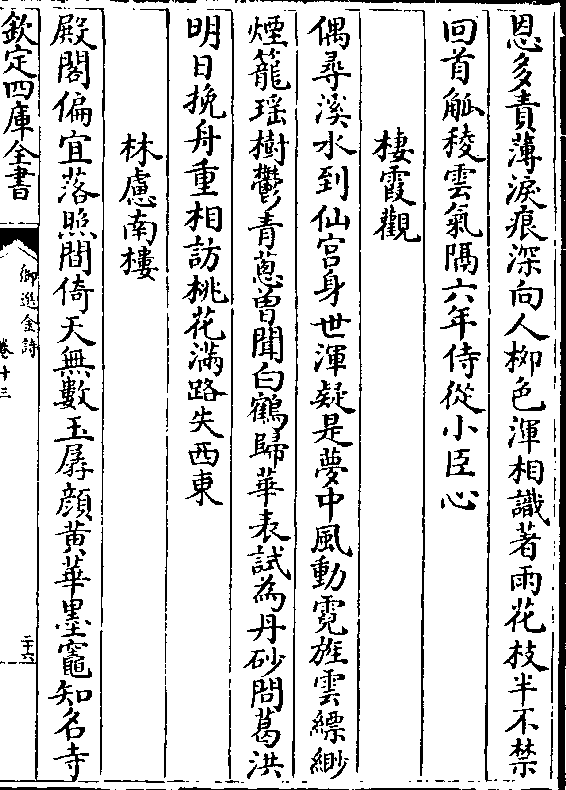 恩多責薄淚痕深向人柳色渾相識著雨花枝半不禁
回首觚稜雲氣隔六年侍從小臣心
棲霞觀
偶尋溪水到仙宮身世渾疑是夢中風動霓旌雲縹緲
煙籠瑶樹鬱青蔥曽聞白鶴歸華表試為丹砂問葛洪
明日挽舟重相訪桃花滿路失西東
林慮南樓
殿閣偏宜落照間倚天無數玉孱顔黄華墨竈知名寺
欽定四庫全書
御選金詩
卷十三
二十六